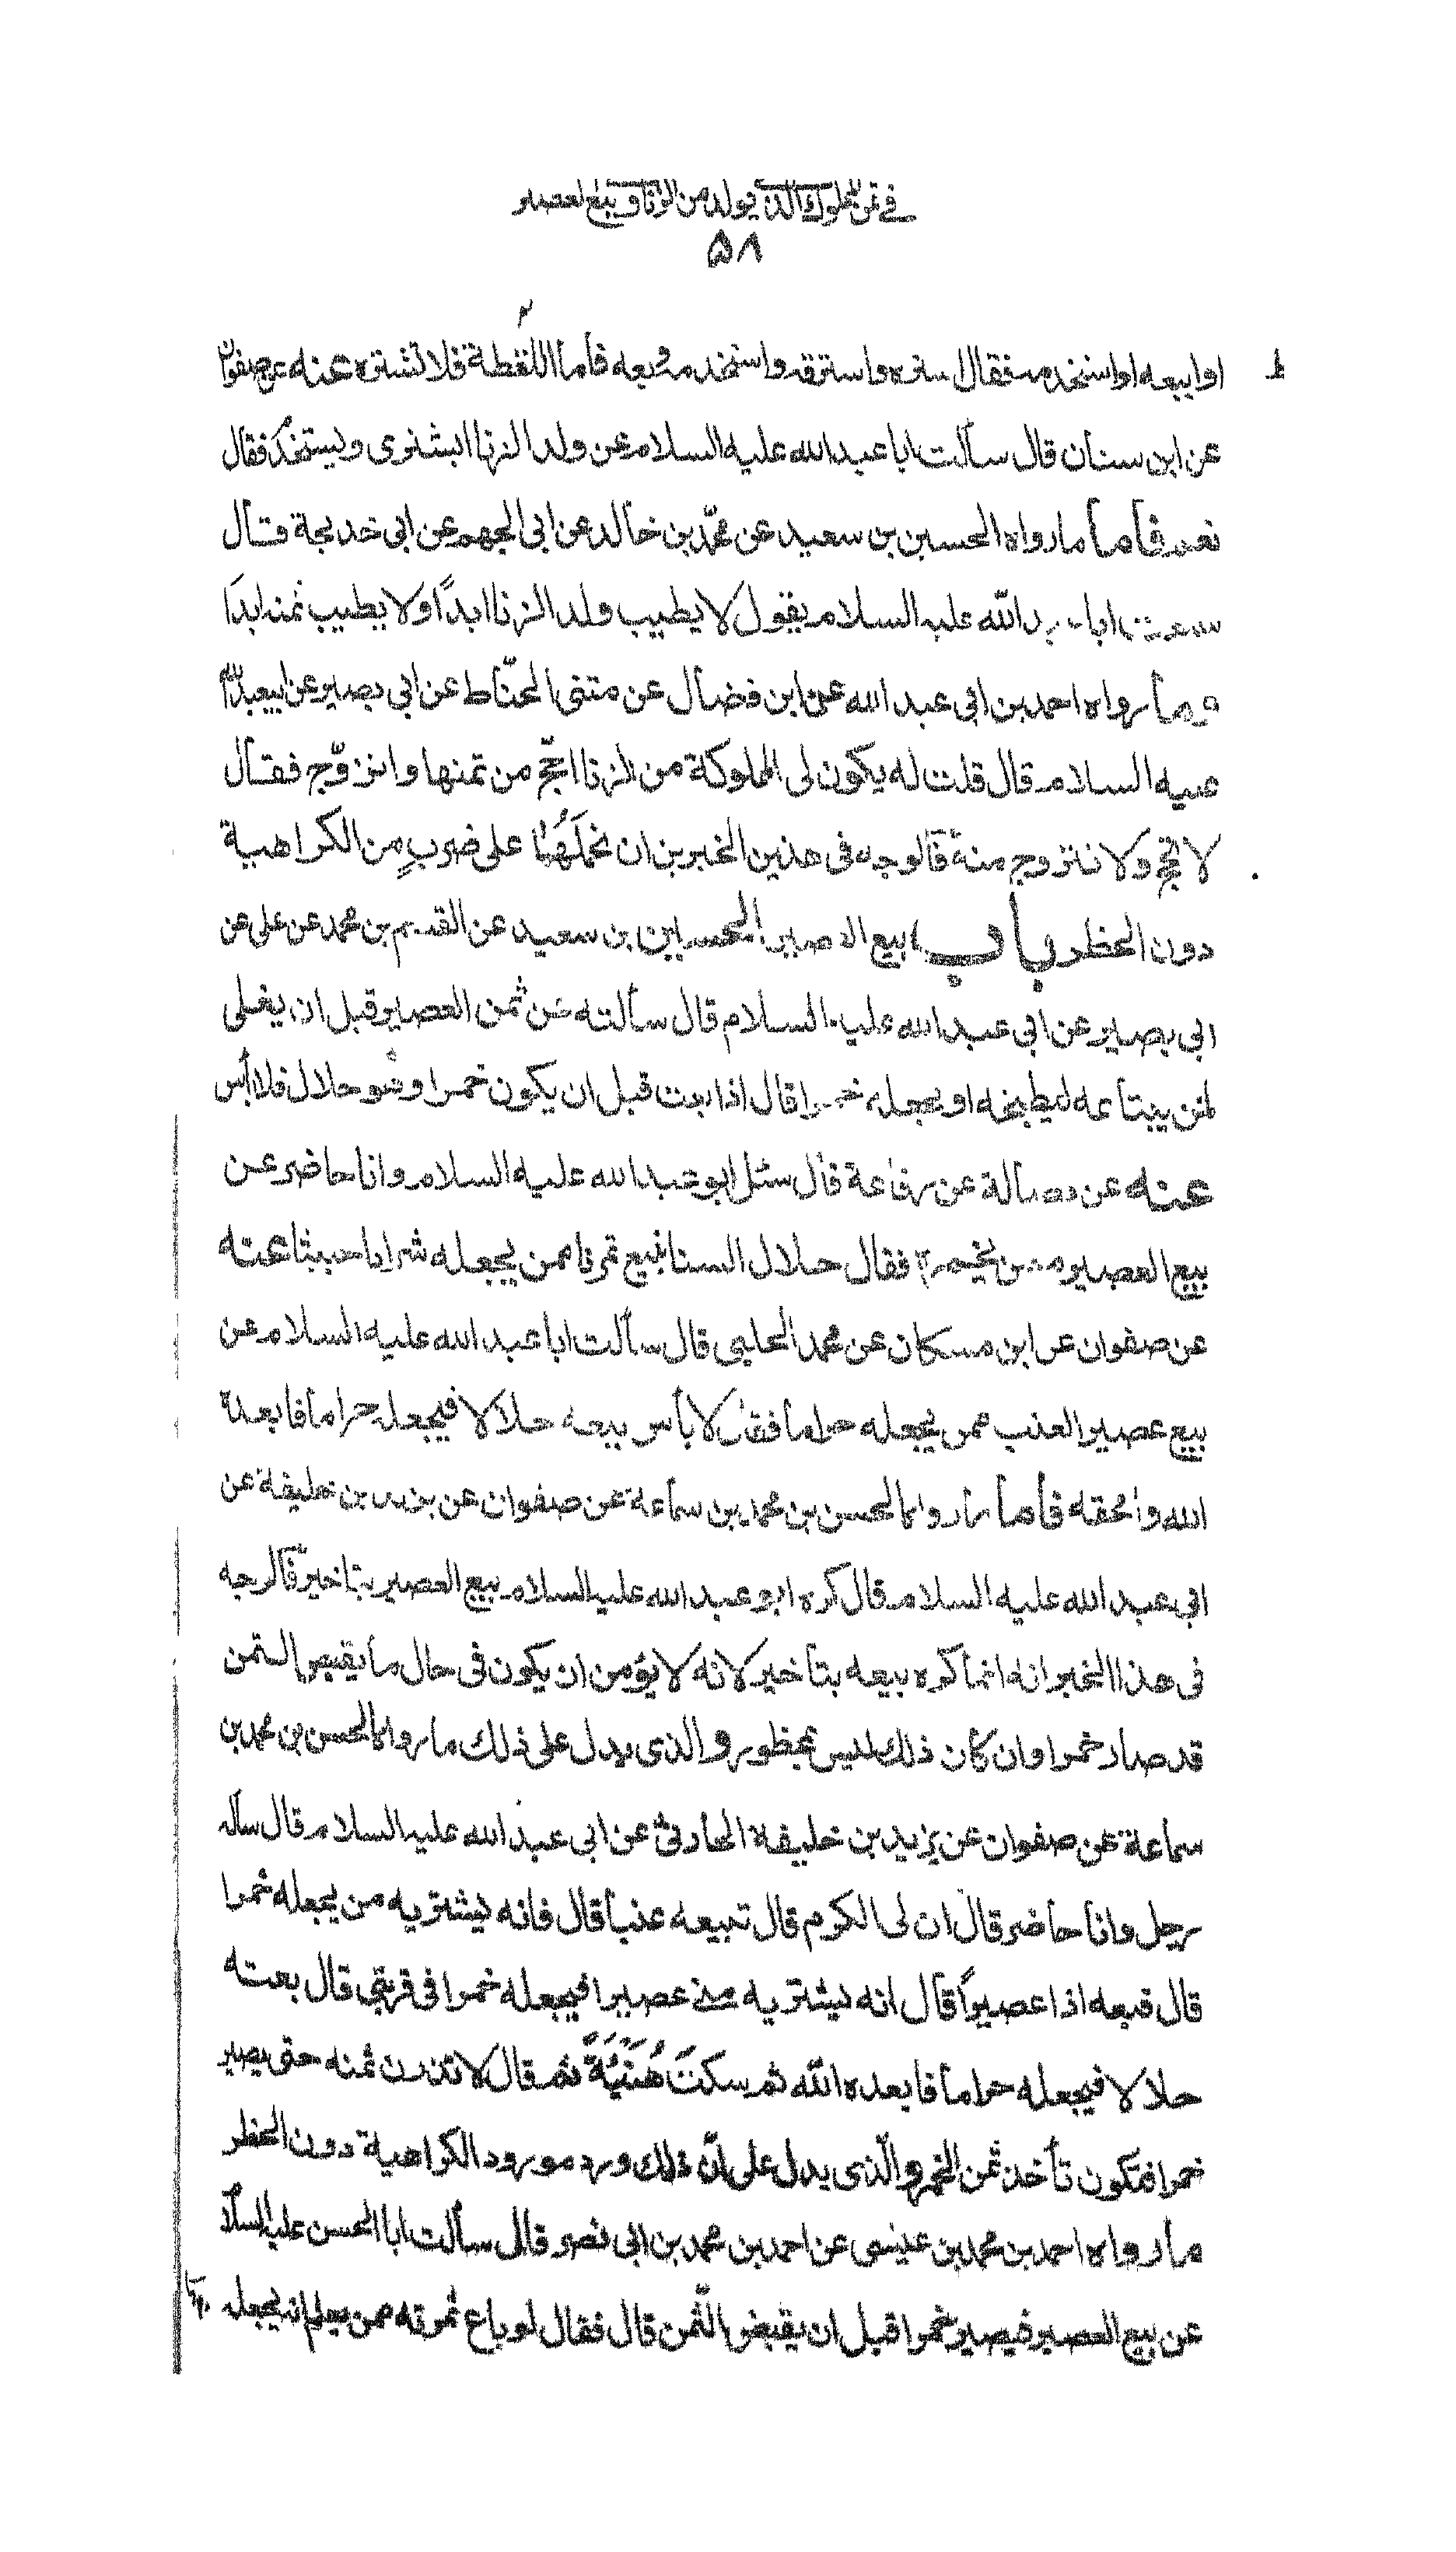 في ثمن المملوك الذي يولد من الزنا و بيع العصير
۵۸
او ابيعه او استخدمه فقال اشتره واسترقه واستخدمه وبعه فأما اللقطة فلا تشتره عنه عن صفوان
عن ابن سنان قال سألت ابا عبد الله عليه السلام عن ولد الزنا ايشترى ويستخدم فقال
نعم فأما ما رواه الحسين بن سعيد عن محمّد بن خالد عن ابى الجهم عن ابى خديجة قال
سمعت ابا عبد الله عليه السلام يقول لا يطيب ولد الزنا ابداً ولا يطيب ثمنه ابداً
وما رواه احمد بن ابى عبد الله عن ابن فضال عن مثنى الحنّاط عن ابى بصير عن ابيعبد الله
عليه السلام قال قلت له يكون لى المملوكة من الزنا احّج من ثمنها واتزوّج فقال
لا تحج ولا تتزوج منه فالوجه فى هذين الخبرين ان نحملَهُما على ضربٍ من الكراهية
دون الحظر باب بيع العصير الحسين بن سعيد عن القسم بن محمد عن على عن
ابى بصير عن ابى عبد الله عليه السلام قال سألته عن ثمن العصير قبل ان يغلى
لمن يبتاعه ليطبخه او يجعله خمرا قال اذا بعت قبل ان يكون خمرا وهو حلال فلا بأس
عنه عن فضالة عن رفاعة قال سئل ابو عبد الله عليه السلام وانا حاضر عن
بيع العصير ممن يخمره فقال حلال السنا نبيع تمرنا ممن يجعله شرابا خبيثا عنه
عن صفوان عن ابن مسكان عن محمد الحلبى قال سألت ابا عبد الله عليه السلام عن
بيع عصير العنب ممن يجعله حراما فقال لا بأس ببيعه حلالا فيجعله حراما فابعده
الله واسحقه فأما ما رواه الحسن بن محمد بن سماعة عن صفوان عن يزيد بن خليفة عن
ابى عبد الله عليه السلام قال كره ابو عبد الله عليه السلام بيع العصير بتاخير فالوجه
فى هذا الخبر انه انما كره بيعه بتأخير لانه لا يؤمن ان يكون فى حال ما يقبض الثمن
قد صار خمرا وان كان ذلك ليس بمحظور والذى يدل على ذلك ما رواه الحسن بن محمد بن
سماعة عن صفوان عن يزيد بن خليفة الحارثى عن ابى عبد الله عليه السلام قال سأله
رجل وانا حاضر قال ان لى الكرم قال تبيعه عنبا قال فانه يشتريه من يجعله خمرا
قال فبعه اذا عصيراً قال انه يشتريه منى عصيرا فيجعله خمرا فى قربتى قال بعته
حلالا فيجعله حراما فابعده الله ثم سكت هُنَيْئَةً ثم قال لا تذرن ثمنه حتى يصير
خمرا فتكون تأخذ ثمن الخمر والّذى يدل على انّ ذلك ورد مورود الكراهية دون الحظر
ما رواه احمد بن محمد بن عيسى عن احمد بن محمد بن ابى نصر قال سألت ابا الحسن عليه السلام
عن بيع العصير فيصير خمرا قبل ان يقبض الثّمن قال فقال لو باع ثمرته ممن يعلم انه يجعله